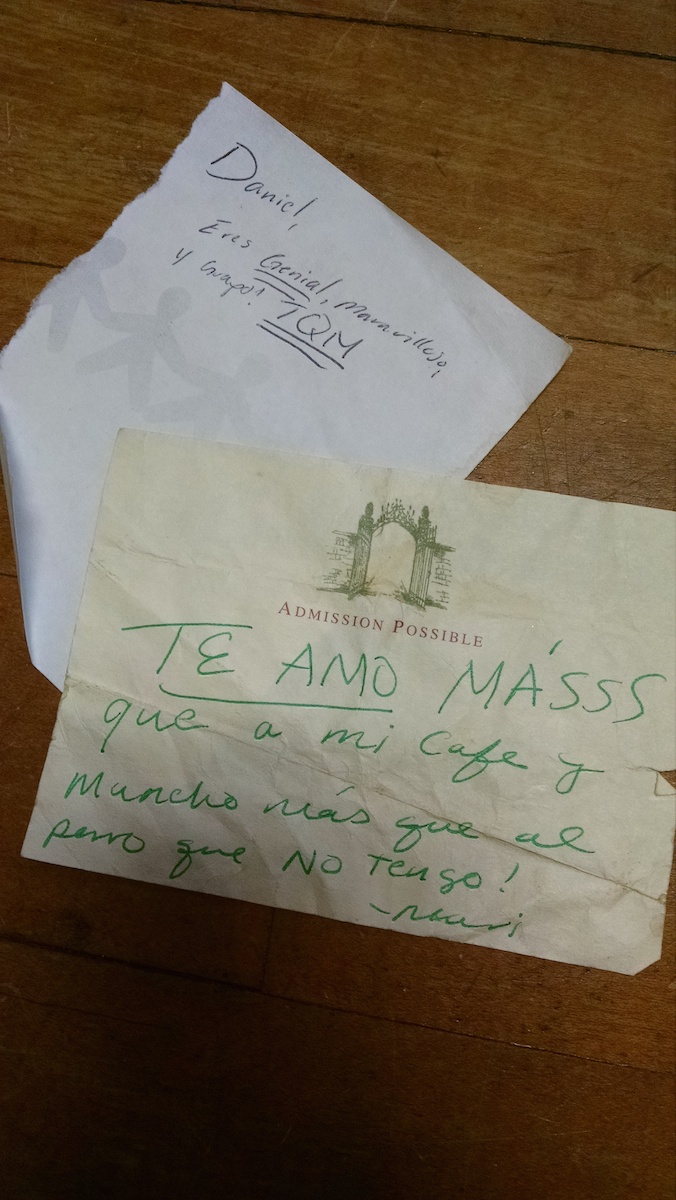 Daniel,
Eres Genial, maravilloso,
y Guapo! TQM
ADMISSION POSSIBLE
TE AMO MÁSSS
que a mi Cafe y
Muncho más que al
perro que NO Tengo!